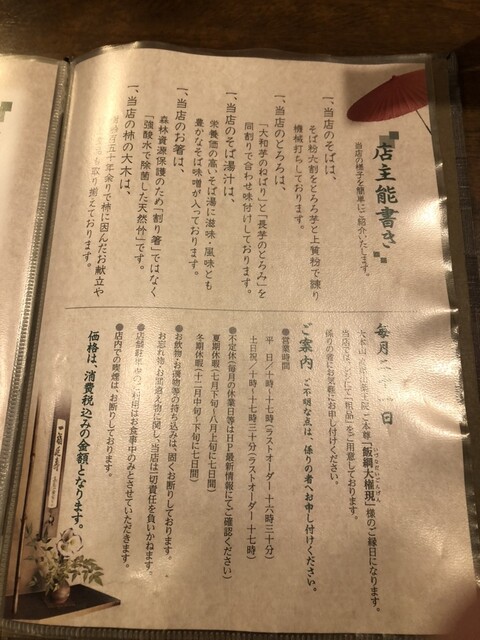 店主能書き
当店の様子を簡単にご紹介いたします。
一、当店のそばは、
そば粉六割をとろろ芋と上質粉で練り
機械打ちしております。
一、当店のとろろは、
「大和芋のねばり」と「長芋のとろみ」を
同割りで合わせ味付けしております。
一、当店のそば湯汁は、
栄養価の高いそば湯に滋味・風味とも
豊かなそば味噌が入っております。
一、当店のお箸は、
森林資源保護のため「割り箸」ではなく
「強酸水で除菌した天然竹」です。
一、当店の柿の大木は、
五十年余りで柿に因んだお献立や
も取り揃えております。
毎月二十一日
大本山 王院ご本尊「飯綱大権現」様のご縁日になります。
当店では 「粗品」をご用意しております。
係りの者にお気軽にお申し付けください。
ご案内 ご不明な点は、係りの者へお申し付けください。
●営業時間
平 日／十時~十七時(ラストオーダー 十六時三十分)
土日祝／十時~十七時三十分(ラストオーダー 十七時)
●不定休(毎月の休業日等はHP最新情報にてご確認ください)
夏期休暇(七月下旬~八月上旬に七日間)
冬期休暇(十二月中旬~下旬に七日間)
●お飲物・お漬物等の持ち込みは、固くお断りしております。
お忘れ物・お間違え物に関し、当店は一切責任を負いかねます。
●店舗駐車場のご利用はお食事中のみとさせていただきます。
●店内での喫煙は、お断りしております。
価格は、消費税込みの金額となります。